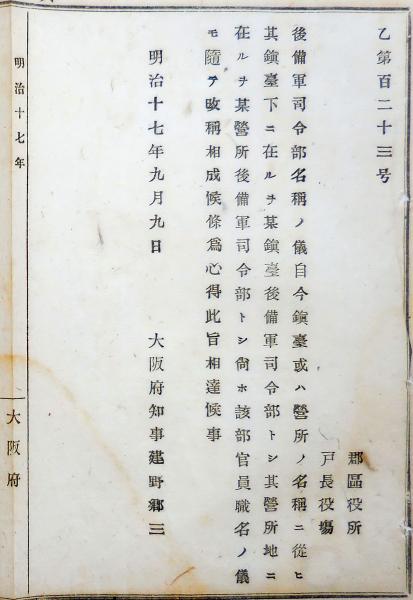 乙第百二十三号
郡區役所
戸長役塲
後備軍司令部名稱ノ儀自今鎭臺或ハ營所ノ名稱ニ從ヒ
其鎭臺下ニ在ルヲ某鎭臺後備軍司令部トシ其營所地ニ
在ルヲ某營所後備軍司令部トシ尙ホ該部官員職名ノ儀
モ隨テ改稱相成候條爲心得此旨相達候事
明治十七年九月九日 大阪府知事建野郷三
明治十七年
大阪府